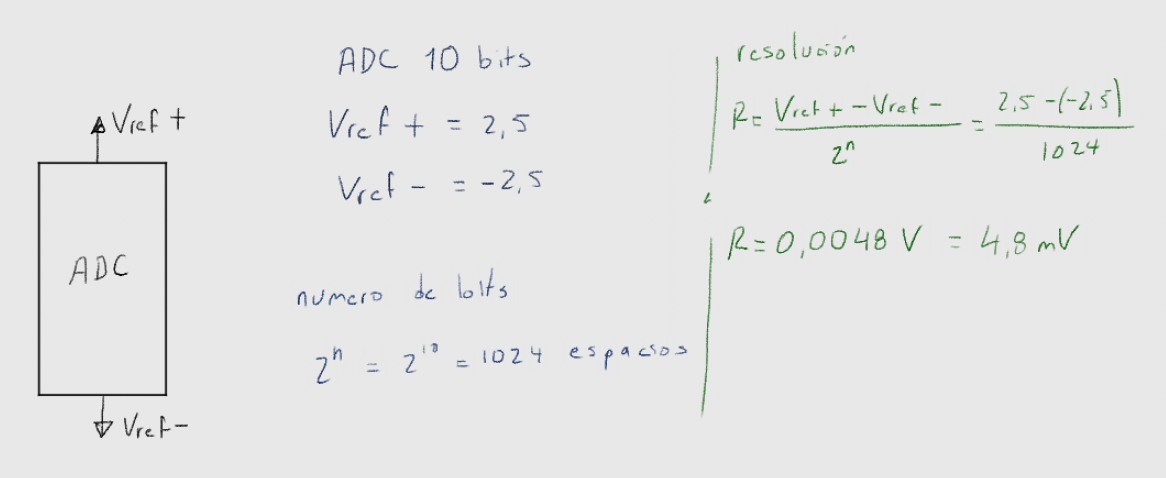 Vref +
ADC
Vref -
ADC 10 bits
Vref + = 2,5
Vref - = -2,5
numero de bits
2ⁿ = 2¹⁰ = 1024 espacios
resolución
R= Vref + - Vref - / 2ⁿ = 2,5 -(-2,5) / 1024
R = 0,0048 V = 4,8 mV